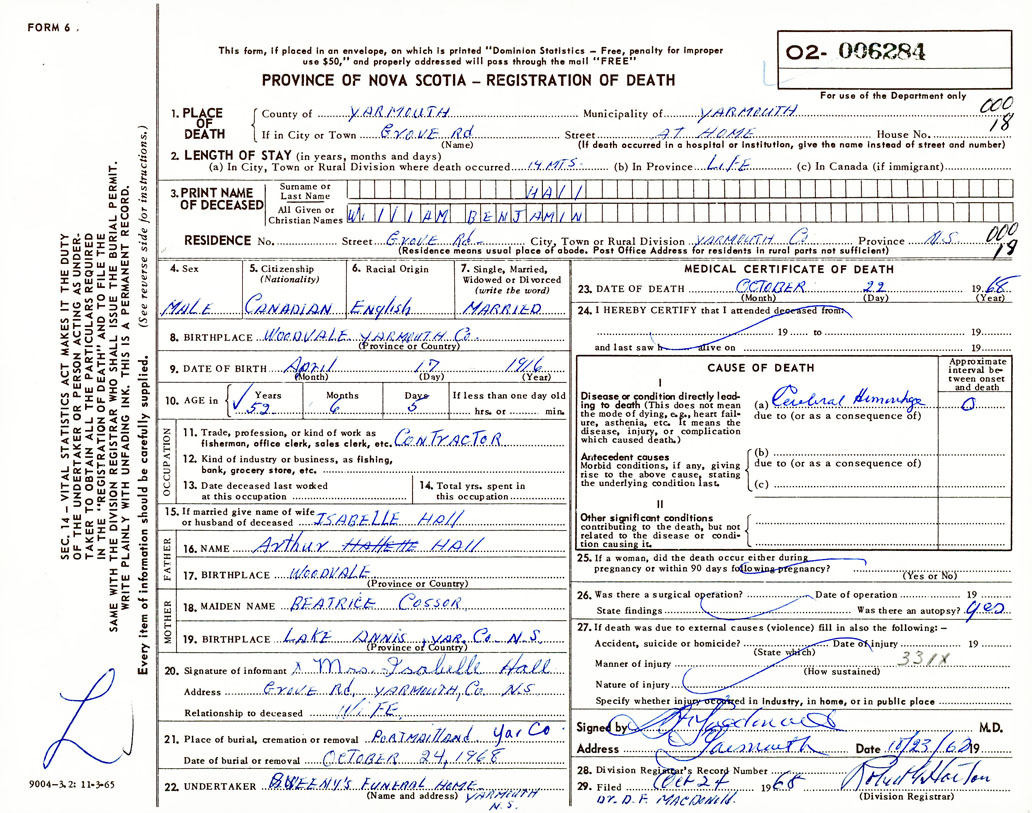 FORM 6 .
This form, if placed in an envelope, on which is printed "Dominion Statistics – Free, penalty for improper
use $50," and properly addressed will pass through the mail "FREE"
PROVINCE OF NOVA SCOTIA – REGISTRATION OF DEATH
O2- 006284
For use of the Department only
000
18
SEC. 14 – VITAL STATISTICS ACT MAKES IT THE DUTY
OF THE UNDERTAKER OR PERSON ACTING AS UNDER-
TAKER TO OBTAIN ALL THE PARTICULARS REQUIRED
IN THE "REGISTRATION OF DEATH" AND TO FILE THE
SAME WITH THE DIVISION REGISTRAR WHO SHALL ISSUE THE BURIAL PERMIT.
WRITE PLAINLY WITH UNFADING INK. THIS IS A PERMANENT RECORD.
Every item of information should be carefully supplied. (See reverse side for instructions.)
1. PLACE OF DEATH County of YARMOUTH Municipality of YARMOUTH
If in City or Town Grove Rd Street AT HOME House No.
(Name) (If death occurred in a hospital or institution, give the name instead of street and number)
2. LENGTH OF STAY (in years, months and days)
(a) In City, Town or Rural Division where death occurred 14 MTS. (b) In Province LIFE (c) In Canada (if immigrant)
3. PRINT NAME OF DECEASED Surname or Last Name HAll
All Given or Christian Names WIllIAM BENJAMIN
RESIDENCE No. Street Grove Rd- City, Town or Rural Division YARMOUTH Co. Province N.S.
(Residence means usual place of abode. Post Office Address for residents in rural parts not sufficient)
000
18
4. Sex 5. Citizenship (Nationality) 6. Racial Origin 7. Single, Married, Widowed or Divorced (write the word)
MALE CANADIAN English MARRIED
8. BIRTHPLACE WOODVALE YARMOUTH Co.
(Province or Country)
9. DATE OF BIRTH April 17 1916
(Month) (Day) (Year)
10. AGE in Years Months Days If less than one day old
52 6 5 hrs. or min.
OCCUPATION
11. Trade, profession, or kind of work as fisherman, office clerk, sales clerk, etc. CONTRACTOR
12. Kind of industry or business, as fishing, bank, grocery store, etc.
13. Date deceased last worked at this occupation 14. Total yrs. spent in this occupation
15. If married give name of wife or husband of deceased ISABELLE HAll
FATHER
16. NAME Arthur HAll
17. BIRTHPLACE WOODVALE
(Province or Country)
MOTHER
18. MAIDEN NAME BEATRICE COSSOR
19. BIRTHPLACE LAKE ANNIS, YAR. Co. N.S.
(Province or Country)
20. Signature of informant x Mrs. Isabelle Hall
Address Grove Rd, YARMOUTH, Co. N.S
Relationship to deceased WIFE
21. Place of burial, cremation or removal PORTMAITLAND Yar Co
Date of burial or removal OCTOBER 24, 1968
22. UNDERTAKER SWEENY'S FUNERAL HOME
(Name and address) YARMOUTH
N.S.
9004–3.2: 11-3-65
MEDICAL CERTIFICATE OF DEATH
23. DATE OF DEATH OCTOBER 22 1968
(Month) (Day) (Year)
24. I HEREBY CERTIFY that I attended deceased from:
19 to 19
and last saw h alive on 19
CAUSE OF DEATH
Approximate interval between onset and death
I
Disease or condition directly leading to death (This does not mean the mode of dying, e.g., heart failure, asthenia, etc. It means the disease, injury, or complication which caused death.)
(a) Cerebral Hemorrhage 0
due to (or as a consequence of)
Antecedent causes
Morbid conditions, if any, giving rise to the above cause, stating the underlying condition last.
(b)
due to (or as a consequence of)
(c)
II
Other significant conditions
contributing to the death, but not related to the disease or condition causing it.
25. If a woman, did the death occur either during
pregnancy or within 90 days following pregnancy?
(Yes or No)
26. Was there a surgical operation? Date of operation 19
State findings Was there an autopsy? Yes
27. If death was due to external causes (violence) fill in also the following: –
Accident, suicide or homicide? Date of injury 19
(State which)
Manner of injury 331X
(How sustained)
Nature of injury
Specify whether injury occurred in industry, in home, or in public place
Signed by Macdonald M.D.
Address Yarmouth Date 10/23/6219
28. Division Registrar's Record Number
29. Filed Oct 24 1968 Robert G Horton
DR. D. F. MACDONALD. (Division Registrar)
L